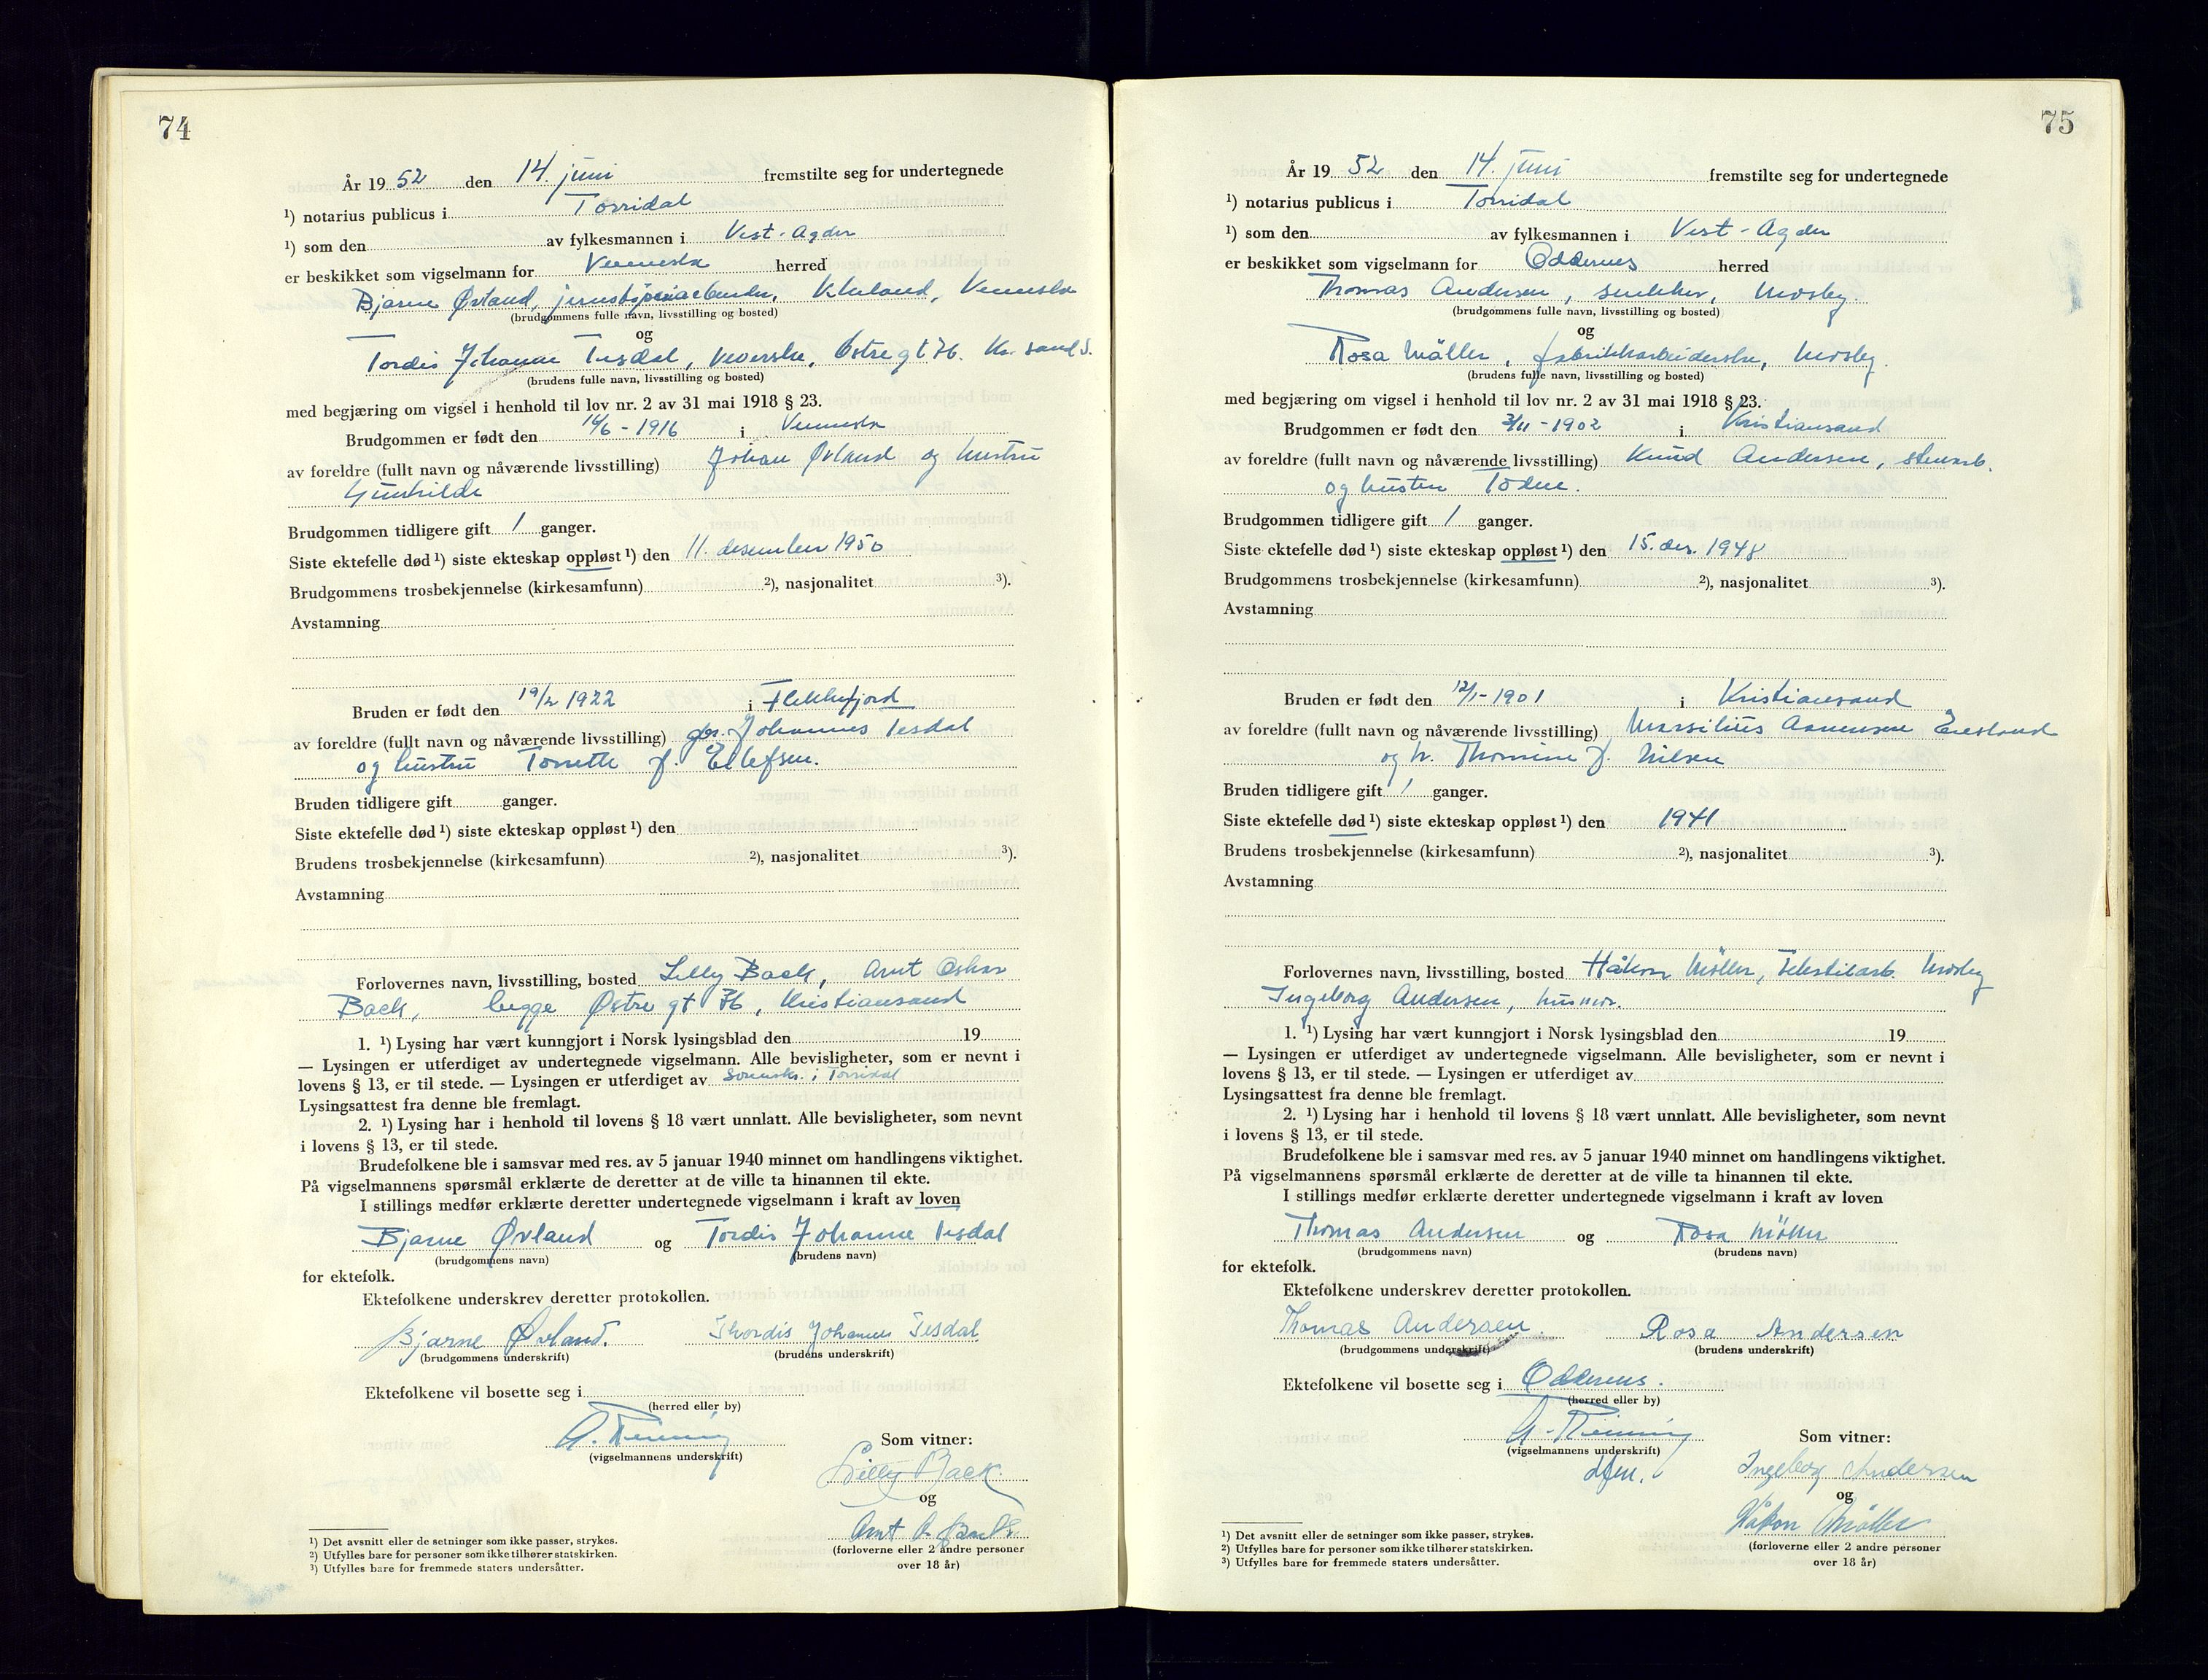 74
År 19 52 den 14. juni fremstilte seg for undertegnede
¹) notarius publicus i Torridal
¹) som den av fylkesmannen i Vest-Agder
er beskikket som vigselmann for Vennesla herred
Bjarne Øvland, Vennesla
(brudgommens fulle navn, livsstilling og bosted)
og
Tordis Johanne Tesdal, veverske, Østre gt 76. Kr. sand S.
(brudens fulle navn, livsstilling og bosted)
med begjæring om vigsel i henhold til lov nr. 2 av 31 mai 1918 § 23.
Brudgommen er født den 1916 i Vennesla
av foreldre (fullt navn og nåværende livsstilling) Johan Øvland og hustru
Gunhilde
Brudgommen tidligere gift 1 ganger.
Siste ektefelle død ¹) siste ekteskap oppløst ¹) den 11. desember 1950
Brudgommens trosbekjennelse (kirkesamfunn) ²), nasjonalitet ³).
Avstamning
Bruden er født den 19/2 1922 i Flekkefjord
av foreldre (fullt navn og nåværende livsstilling) Johannes Tesdal
og hustru Torette f. Ellefsen.
Bruden tidligere gift ganger.
Siste ektefelle død ¹) siste ekteskap oppløst ¹) den
Brudens trosbekjennelse (kirkesamfunn) ²), nasjonalitet ³).
Avstamning
Forlovernes navn, livsstilling, bosted Lilly Back, Arnt Oskar
Back, begge Østre gt 76, Kristiansand
1. ¹) Lysing har vært kunngjort i Norsk lysingsblad den 19
— Lysingen er utferdiget av undertegnede vigselmann. Alle bevisligheter, som er nevnt i
lovens § 13, er til stede. — Lysingen er utferdiget av sorenskr. i Torridal
Lysingsattest fra denne ble fremlagt.
2. ¹) Lysing har i henhold til lovens § 18 vært unnlatt. Alle bevisligheter, som nevnt
i lovens § 13, er til stede.
Brudefolkene ble i samsvar med res. av 5 januar 1940 minnet om handlingens viktighet.
På vigselmannens spørsmål erklærte de deretter at de ville ta hinannen til ekte.
I stillings medfør erklærte deretter undertegnede vigselmann i kraft av loven
Bjarne Øvland og Tordis Johanne Tesdal
(brudgommens navn) (brudens navn)
for ektefolk.
Ektefolkene underskrev deretter protokollen.
Bjarne Øvland. Thordis Johanne Tesdal
(brudgommens underskrift) (brudens underskrift)
Ektefolkene vil bosette seg i
(herred eller by)
Som vitner:
(vigselmannens underskrift)
Lilly Back.
og
Arnt O. Back
(forloverne eller 2 andre personer
over 18 år)
¹) Det avsnitt eller de setninger som ikke passer, strykes.
²) Utfylles bare for personer som ikke tilhører statskirken.
³) Utfylles bare for fremmede staters undersåtter.
75
År 19 52 den 14. juni fremstilte seg for undertegnede
¹) notarius publicus i Torridal
¹) som den av fylkesmannen i Vest-Agder
er beskikket som vigselmann for Oddernes herred
Thomas Andersen, snekker, Mosby.
(brudgommens fulle navn, livsstilling og bosted)
og
Rosa Möller, fabrikkarbeiderske, Mosby.
(brudens fulle navn, livsstilling og bosted)
med begjæring om vigsel i henhold til lov nr. 2 av 31 mai 1918 § 23.
Brudgommen er født den 3/11-1902 i Kristiansand
av foreldre (fullt navn og nåværende livsstilling) Knud Andersen, stenarb.
og hustru Todne.
Brudgommen tidligere gift 1 ganger.
Siste ektefelle død ¹) siste ekteskap oppløst ¹) den 15. des. 1948
Brudgommens trosbekjennelse (kirkesamfunn) ²), nasjonalitet ³).
Avstamning
Bruden er født den 12/1-1901 i Kristiansand
av foreldre (fullt navn og nåværende livsstilling) Marsilius Aanensen
og h. Thomine f. Nilsen
Bruden tidligere gift 1 ganger.
Siste ektefelle død ¹) siste ekteskap oppløst ¹) den 1941
Brudens trosbekjennelse (kirkesamfunn) ²), nasjonalitet ³).
Avstamning
Forlovernes navn, livsstilling, bosted Håkon Möller, Tekstilarb. Mosby
Ingeborg Andersen, husmor.
1. ¹) Lysing har vært kunngjort i Norsk lysingsblad den 19
— Lysingen er utferdiget av undertegnede vigselmann. Alle bevisligheter, som er nevnt i
lovens § 13, er til stede. — Lysingen er utferdiget av
Lysingsattest fra denne ble fremlagt.
2. ¹) Lysing har i henhold til lovens § 18 vært unnlatt. Alle bevisligheter, som nevnt
i lovens § 13, er til stede.
Brudefolkene ble i samsvar med res. av 5 januar 1940 minnet om handlingens viktighet.
På vigselmannens spørsmål erklærte de deretter at de ville ta hinannen til ekte.
I stillings medfør erklærte deretter undertegnede vigselmann i kraft av loven
Thomas Andersen og Rosa Möller
(brudgommens navn) (brudens navn)
for ektefolk.
Ektefolkene underskrev deretter protokollen.
Thomas Andersen. Rosa Andersen
(brudgommens underskrift) (brudens underskrift)
Ektefolkene vil bosette seg i Oddernes.
(herred eller by)
Som vitner:
(vigselmannens underskrift)
Ingeborg Andersen
og
Håkon Möller
(forloverne eller 2 andre personer
over 18 år)
¹) Det avsnitt eller de setninger som ikke passer, strykes.
²) Utfylles bare for personer som ikke tilhører statskirken.
³) Utfylles bare for fremmede staters undersåtter.